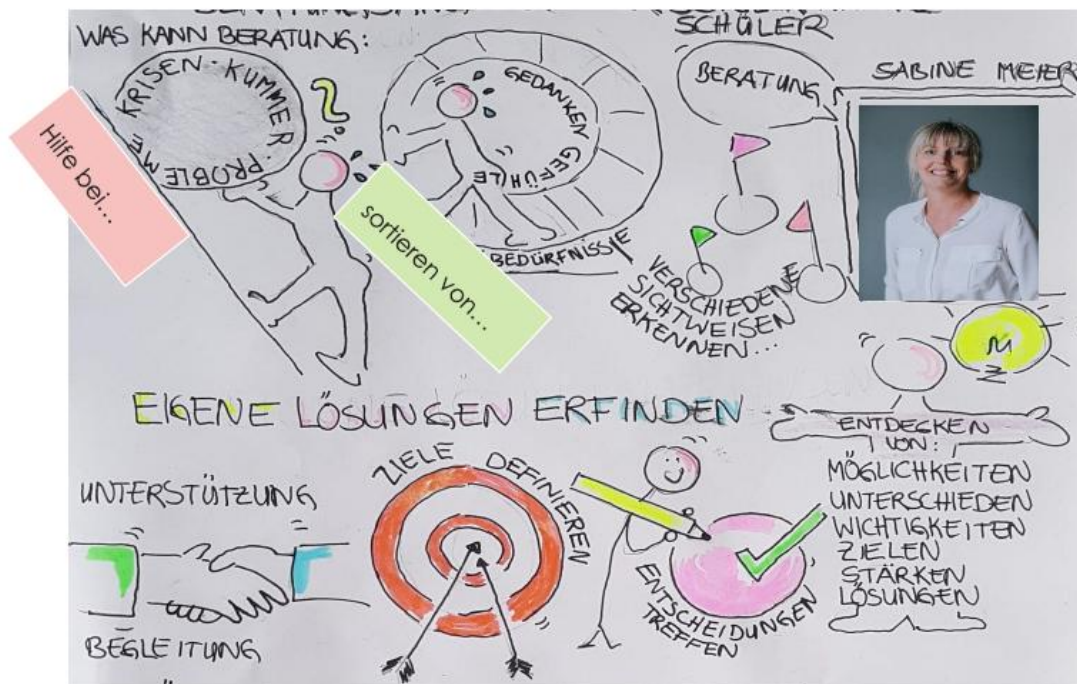 SCHÜLER
WAS KANN BERATUNG:
KRISEN · KUMMER · PROBLEME
Hilfe bei...
GEDANKEN GEFÜHLE
BEDÜRFNISSE
sortieren von...
BERATUNG
SABINE MEIER
VERSCHIEDENE
SICHTWEISEN
ERKENNEN...
EIGENE LÖSUNGEN ERFINDEN
ENTDECKEN
VON:
MÖGLICHKEITEN
UNTERSCHIEDEN
WICHTIGKEITEN
ZIELEN
STÄRKEN
LÖSUNGEN
UNTERSTÜTZUNG
BEGLEITUNG
ZIELE DEFINIEREN
ENTSCHEIDUNGEN
TREFFEN